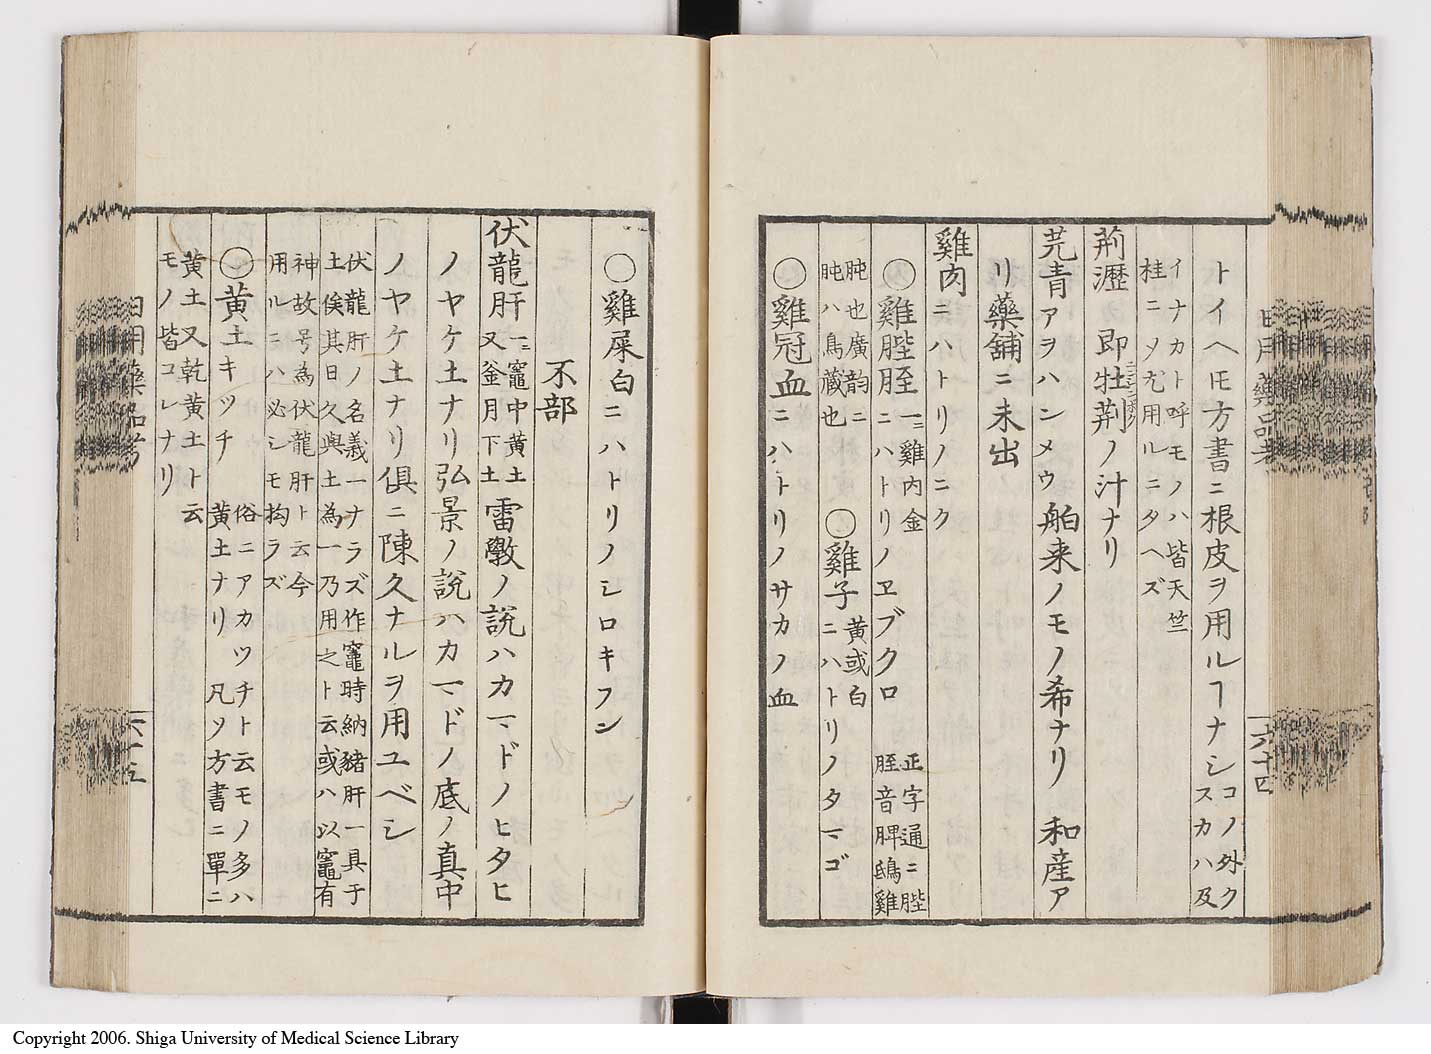 トイヘ𪜈方書ニ根皮ヲ用ルヿナシ コノ外クスカハ及
イナカト呼モノハ皆天竺
桂ニソ尤用ルニタヘズ
荊瀝 即牡荊ノ汁ナリ
芫青 アヲハンメウ 舶来ノモノ希ナリ 和産ア
リ藥舗ニ未出
雞肉 ニハトリノニク
○雞䏶胵 一ニ雞内金 ニハトリノヱブクロ 正字通ニ䏶胵音脾鴟雞
肫也廣韵ニ
肫ハ鳥藏也
○雞子 黄或白 ニハトリノタマゴ
○雞冠血 ニハトリノサカノ血
日用藥品考
六十四
○雞屎白 ニハトリノシロキフン
不部
伏龍肝 一ニ竈中黄土又釜月下土 雷斅ノ説ハカマドノヒタヒ
ノヤケ土ナリ弘景ノ説ハカマドノ底ノ真中
ノヤケ土ナリ倶ニ陳久ナルヲ用ユベシ
伏龍肝ノ名義一ナラズ作竈時納豬肝一具于
土俟其日久與土為一乃用之ト云或ハ以竈有
神故号為伏龍肝ト云今
用ルニハ必シモ拘ラズ
○黄土 キツチ 俗ニアカツチト云モノ多ハ
黄土ナリ 凡ソ方書ニ單ニ
黄土又乾黄土ト云
モノ皆コレナリ
日用藥品考
六十五
Copyright 2006. Shiga University of Medical Science Library